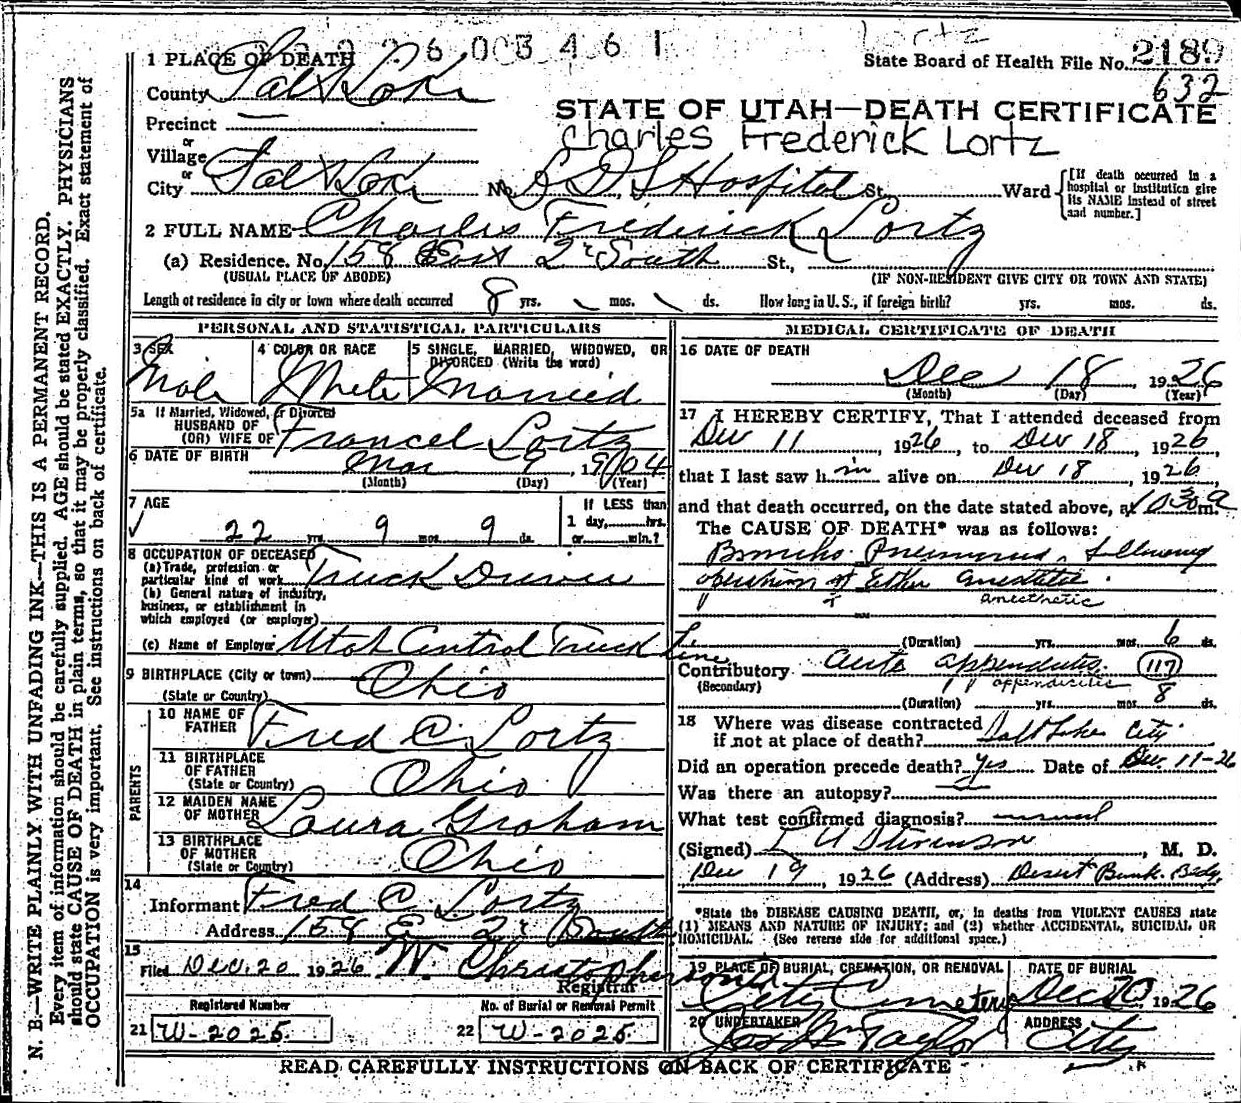 26 003461
Lortz
1 PLACE OF DEATH
State Board of Health File No. 2189
632
County Salt Lake
STATE OF UTAH—DEATH CERTIFICATE
Precinct —
Charles Frederick Lortz
or
Village
or
City Salt Lake No. L D S Hospital St., Ward
[If death occurred in a hospital or institution give its NAME instead of street and number.]
2 FULL NAME Charles Frederick Lortz
(a) Residence. No. 158 East 2d South St.,
(USUAL PLACE OF ABODE) (IF NON-RESIDENT GIVE CITY OR TOWN AND STATE)
Length of residence in city or town where death occurred 8 yrs. mos. ds. How long in U. S., if foreign birth? yrs. mos. ds.
PERSONAL AND STATISTICAL PARTICULARS
3 SEX
Male
4 COLOR OR RACE
White
5 SINGLE, MARRIED, WIDOWED, OR DIVORCED (Write the word)
Married
5a If Married, Widowed, or Divorced
HUSBAND OF
(OR) WIFE OF Francel Lortz
6 DATE OF BIRTH Mar 9, 1904
(Month) (Day) (Year)
7 AGE
22 yrs. 9 mos. 9 ds.
If LESS than
1 day,......hrs.
or......min.?
8 OCCUPATION OF DECEASED
(a) Trade, profession or
particular kind of work Truck Driver
(b) General nature of industry,
business, or establishment in
which employed (or employer)
(c) Name of Employer Utah Central Truck Line
9 BIRTHPLACE (City or town)
(State or Country) Ohio
PARENTS
10 NAME OF
FATHER Fred C Lortz
11 BIRTHPLACE
OF FATHER
(State or Country) Ohio
12 MAIDEN NAME
OF MOTHER Laura Graham
13 BIRTHPLACE
OF MOTHER
(State or Country) Ohio
14
Informant Fred C. Lortz
Address 158 E 2d South
15
Filed Dec. 20 1926 W. Christopherson
Registrar
Registered Number
21 W-2025
No. of Burial or Removal Permit
22 W-2025
MEDICAL CERTIFICATE OF DEATH
16 DATE OF DEATH
Dec 18, 1926
(Month) (Day) (Year)
17 I HEREBY CERTIFY, That I attended deceased from
Dec 11, 1926, to Dec 18, 1926,
that I last saw h im alive on Dec 18, 1926
and that death occurred, on the date stated above, at 10 30 a m.
The CAUSE OF DEATH* was as follows:
Broncho Pneumonia, following
operation & Ether anestetic.
& anesthetic
(Duration) yrs. mos. 6 ds.
Contributory acute appendicitis. (117)
(Secondary) " appendicitis
(Duration) yrs. mos. 8 ds.
18 Where was disease contracted
if not at place of death? Salt Lake City
Did an operation precede death? yes Date of Dec 11-26
Was there an autopsy?
What test confirmed diagnosis? usual
(Signed) L U Stevenson, M. D.
Dec 19, 1926 (Address) Desert Bank Bldg
*State the DISEASE CAUSING DEATH, or, in deaths from VIOLENT CAUSES state
(1) MEANS AND NATURE OF INJURY; and (2) whether ACCIDENTAL, SUICIDAL OR
HOMICIDAL. (See reverse side for additional space.)
19 PLACE OF BURIAL, CREMATION, OR REMOVAL
City Cemetery
DATE OF BURIAL
Dec 20, 1926
20 UNDERTAKER
Taylor
ADDRESS
City
READ CAREFULLY INSTRUCTIONS ON BACK OF CERTIFICATE
N. B.—WRITE PLAINLY WITH UNFADING INK—THIS IS A PERMANENT RECORD.
Every item of information should be carefully supplied. AGE should be stated EXACTLY. PHYSICIANS
should state CAUSE OF DEATH in plain terms, so that it may be properly classified. Exact statement of
OCCUPATION is very important. See instructions on back of certificate.